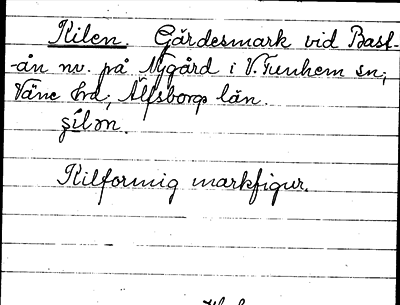 Kilen. Gärdesmark vid Bast-
-ån nv. på Nygård i V. Tunhem sn,
Väne hd, Älfsborgs län.
şílən.
Kilformig markfigur.